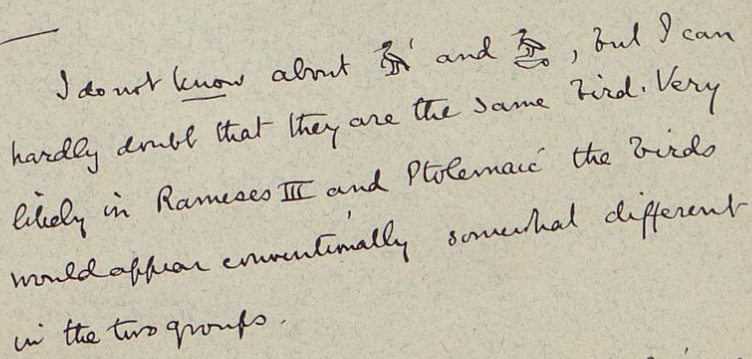 I do not know about and , but I can
hardly doubt that they are the same bird. Very
likely in Rameses III and Ptolemaic the birds
would appear conventionally somewhat different
in the two groups.